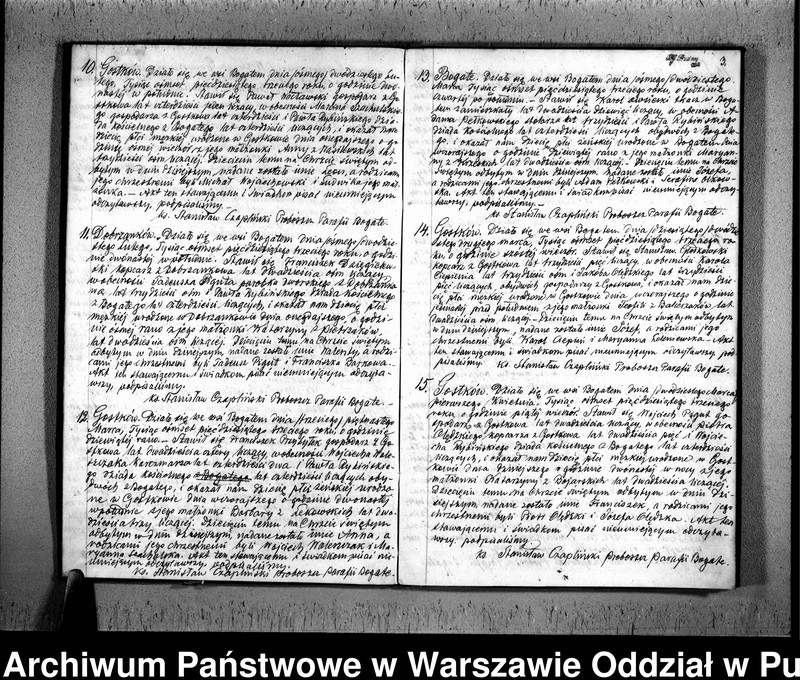 10. Gostków. Działo się we wsi Bogatem dnia /ósmego/ dwudziestego Lu-
tego, Tysiąc ośmset pięćdziesiątego trzeciego roku, o godzinie dwu-
nastej w południe. Stawił się Paweł gospodarz z Go-
stkowa lat czterdzieści jeden liczący, w obecności Marcina
gospodarza z Gostkowa lat czterdzieści i Pawła Rybińskiego Dzia-
da kościelnego z Bogatego lat czterdzieści liczących, i okazał nam
dziecię płci męzkiej urodzone w Gostkowie dnia onegdajszego o go-
dzinie ósmej wieczór z jego małżonki Anny z lat
trzydzieści ośm liczącej. Dziecięciu temu na Chrzcie świętym od-
bytym w dniu dzisiejszym, nadane zostało imie a rodzicami
jego chrzestnemi byli Michał Wojciechowski i Ludwika jego mał-
żonka. — Akt ten stawającemu i świadkom pisać nieumiejącym
odczytawszy, podpisaliśmy. —
ks. Stanisław Czapliński Proboszcz Parafii Bogate.
11. Dobrzankow. Działo się we wsi Bogatem dnia /ósmego/ dwudzie-
stego Lutego, Tysiąc ośmset pięćdziesiątego trzeciego roku, o godzi-
nie dwunastej w południe. Stawił się Franciszek
kopcarz z Dobrzankowa lat dwadzieścia ośm liczący,
w obecności Tadeusza Piguta parobka dworskiego z Dobrzanko-
wa lat trzydzieści ośm i Pawła Rybińskiego dziada kościelnego
z Bogatego lat czterdzieści liczących, i okazał nam dziecię płci
męzkiej urodzone w Dobrzankowie dnia onegdajszego, o godzi-
nie ósmej rano z jego małżonki Katarzyny z Pietrzaków
lat dwadzieścia ośm liczącej. Dziecięciu temu na Chrzcie świętym
odbytym w dniu dzisiejszym, nadane zostało imie Walenty, a rodzi-
cami jego chrzestnemi byli Tadeusz Pigut i Franciszka
Akt ten stawającemu i świadkom pisać nieumiejącym odczyta-
wszy, podpisaliśmy.
ks Stanisław Czapliński Proboszcz Parafii Bogate.
12. Gostków. Działo się we wsi Bogatem dnia /trzeciego/ piętnastego
Marca, Tysiąc ośmset pięćdziesiątego trzeciego roku, o godzinie
dziewiątej rano. — Stawił się Franciszek gospodarz z Go-
stkowa lat dwadzieścia cztery liczący, w obecności Wojciecha Wale-
szczaka Karczmarza lat czterdzieści dwa i Pawła Rybińskie-
go dziada kościelnego lat czterdzieści liczących oby-
dwóch z Bogatego, i okazał nam dziecię płci żeńskiej urodzo-
ne w Gostkowie dnia wczorajszego o godzinie dwunastej
w południe z jego małżonki Barbary z Lekowskich lat dwa-
dzieścia trzy liczącej. Dziecięciu temu na Chrzcie świętym
odbytym w dniu dzisiejszym, nadane zostało imie Anna, a
rodzicami jego chrzestnemi byli Wojciech i Ma-
ryanna Akt ten stawającemu i świadkom pisać nie-
umiejącym odczytawszy, podpisaliśmy.
ks. Stanisław Czapliński Proboszcz Parafii Bogate.
3.
13. Bogate. Działo się we wsi Bogatem dnia /ósmego/ dwudziestego
Marca Tysiąc ośmset pięćdziesiątego trzeciego roku, o godzinie
czwartej po południu. — Stawił się Karol tkacz w Boga-
tem zamieszkały lat dwadzieścia dziewięć liczący, w obecności A-
dama Petkowskiego stolarza lat trzydzieści i Pawła Rybińskiego
dziada kościelnego lat czterdzieści liczących obydwóch z Bogate-
go, i okazał nam dziecię płci żeńskiej urodzone w Bogatem dnia
wczorajszego o godzinie dziewiątej rano z jego małżonki Maryan-
ny z lat dwadzieścia ośm liczącej. Dziecięciu temu na Chrzcie
świętym odbytym w dniu dzisiejszym, nadane zostało imie Józefa,
a rodzicami jego chrzestnemi byli Adam Petkowski i Serafina
Akt ten stawającemu i świadkom pisać nieumiejącym odczy-
tawszy, podpisaliśmy. —
ks Stanisław Czapliński Proboszcz Parafii Bogate.
14. Gostków. Działo się we wsi Bogatem, dnia /dziesiątego/ dwudzie-
stego drugiego marca, Tysiąc ośmset pięćdziesiątego trzeciego ro-
ku, o godzinie szóstej wieczór. Stawił się Stanisław
kopcarz z Gostkowa lat trzydzieści pięć liczący, w obecności Karola
Ciepunia lat trzydzieści ośm i Jakóba lat trzydzieści
pięć liczących, obydwóch gospodarzy z Gostkowa, i okazał nam dzie-
cię płci męzkiej urodzone w Gostkowie dnia wczorajszego o godzinie
pierwszej przed południem z jego małżonki Zofii z lat
dwadzieścia ośm liczącej. — Dziecięciu temu na Chrzcie świętym odbytym
w dniu dzisiejszym, nadane zostało imie Józef, a rodzicami jego
chrzestnemi byli Karol Ciepuń i Maryanna — Akt
ten stawającemu i świadkom pisać nieumiejącym odczytawszy pod-
pisaliśmy.
ks Stanisław Czapliński Proboszcz Parafii Bogate.
15. Gostków. Działo się we wsi Bogatem, dnia /dwudziestego Marca/
pierwszego Kwietnia, Tysiąc ośmset pięćdziesiątego trzeciego
roku, o godzinie piątej wieczór. Stawił się Wojciech Pigut go-
spodarz z Gostkowa lat dwadzieścia liczący, w obecności Piotra
kopcarza z Gostkowa lat dwadzieścia pięć i Wojcie-
cha Rybińskiego dziada kościelnego z Bogatego lat czterdzieści
liczących, i okazał nam dziecię płci męzkiej urodzone w Gost-
kowie dnia dzisiejszego o godzinie dwunastej w nocy z jego
małżonki Katarzyny z Bojarskich lat dwadzieścia liczącej.
Dziecięciu temu na Chrzcie świętym odbytym w dniu dzi-
siejszym nadane zostało imie Franciszek, a rodzicami jego
chrzestnemi byli Piotr i Józefa Akt ten
stawającemu i świadkom pisać nieumiejącym odczyta-
wszy, podpisaliśmy.
ks Stanisław Czapliński Proboszcz Parafii Bogate.
Archiwum Państwowe w Warszawie Oddział w Pu